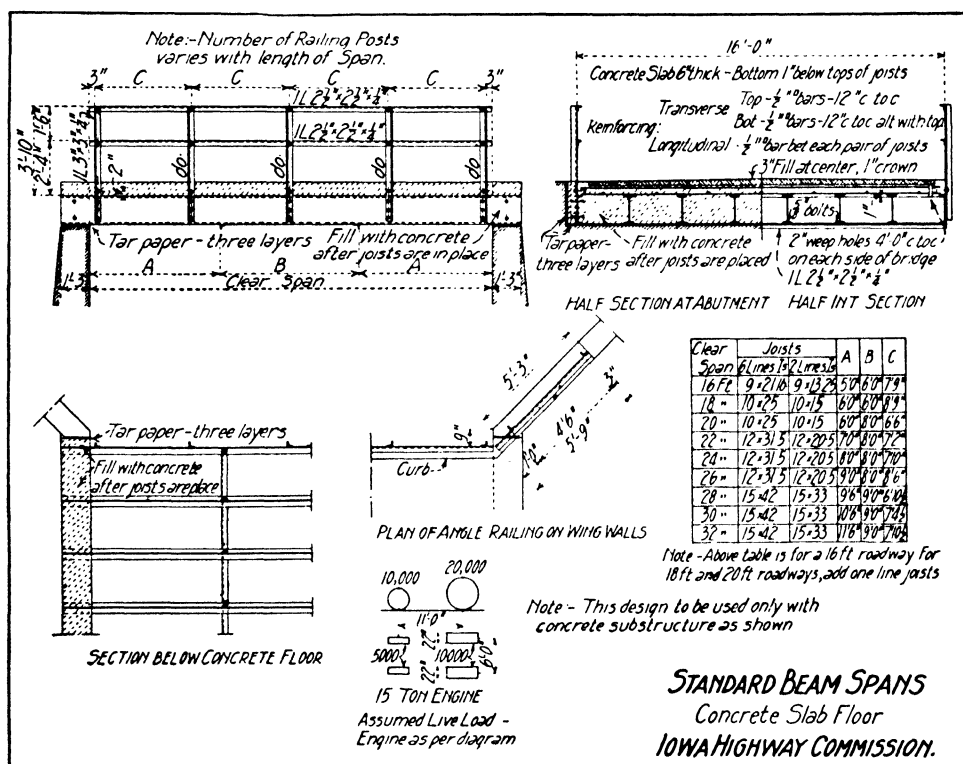 Note:-Number of Railing Posts
varies with length of Span.
3" C C C C 3"
1L 2½"×2½"×¼"
1L 2½"×2½"×¼"
3'-10"
2'-4" 1'-6"
1L 3"×3"×¼"
2"
do do do do
Tar paper-three layers
Fill with concrete
after joists are in place
A B A
1'-3" Clear Span 1'-3"
16'-0"
Concrete Slab 6" thick - Bottom 1" below tops of joists
Reinforcing:
Transverse Top-½"□bars-12"c to c
Bot-½"□bars-12"c to c alt with top
Longitudinal-½"□bar bet each pair of joists
3" Fill at center, 1" crown
bolts 1"
Tar paper-
three layers
Fill with concrete
after joists are placed
2" weep holes 4'-0" c to c
on each side of bridge
1L 2½"×2½"×¼"
HALF SECTION AT ABUTMENT HALF INT SECTION
Tar paper-three layers
Fill with concrete
after joists are place
SECTION BELOW CONCRETE FLOOR
5'-3"
3"
4'-6"
5'-9"
9"
Curb
PLAN OF ANGLE RAILING ON WING WALLS
Clear Span Joists A B C
6 Lines Is 2 Lines Is
16 Ft 9×21 9×13.25 5'0" 6'0" 7'9"
18 " 10×25 10×15 6'0" 6'0" 8'9"
20 " 10×25 10×15 6'0" 8'0" 6'6"
22 " 12×31.5 12×20.5 7'0" 8'0" 7'2"
24 " 12×31.5 12×20.5 8'0" 8'0" 7'10"
26 " 12×31.5 12×20.5 9'0" 8'0" 8'6"
28 " 15×42 15×33 9'6" 9'0" 6'10½"
30 " 15×42 15×33 10'6" 9'0" 7'4½"
32 " 15×42 15×33 11'6" 9'0" 7'10½"
Note-Above table is for a 16 ft roadway For
18 ft and 20 ft roadways, add one line joists
Note - This design to be used only with
concrete substructure as shown
10,000 20,000
11'-0"
5000 22" 10000 6'-0"
22"
15 TON ENGINE
Assumed Live Load -
Engine as per diagram
STANDARD BEAM SPANS
Concrete Slab Floor
IOWA HIGHWAY COMMISSION.